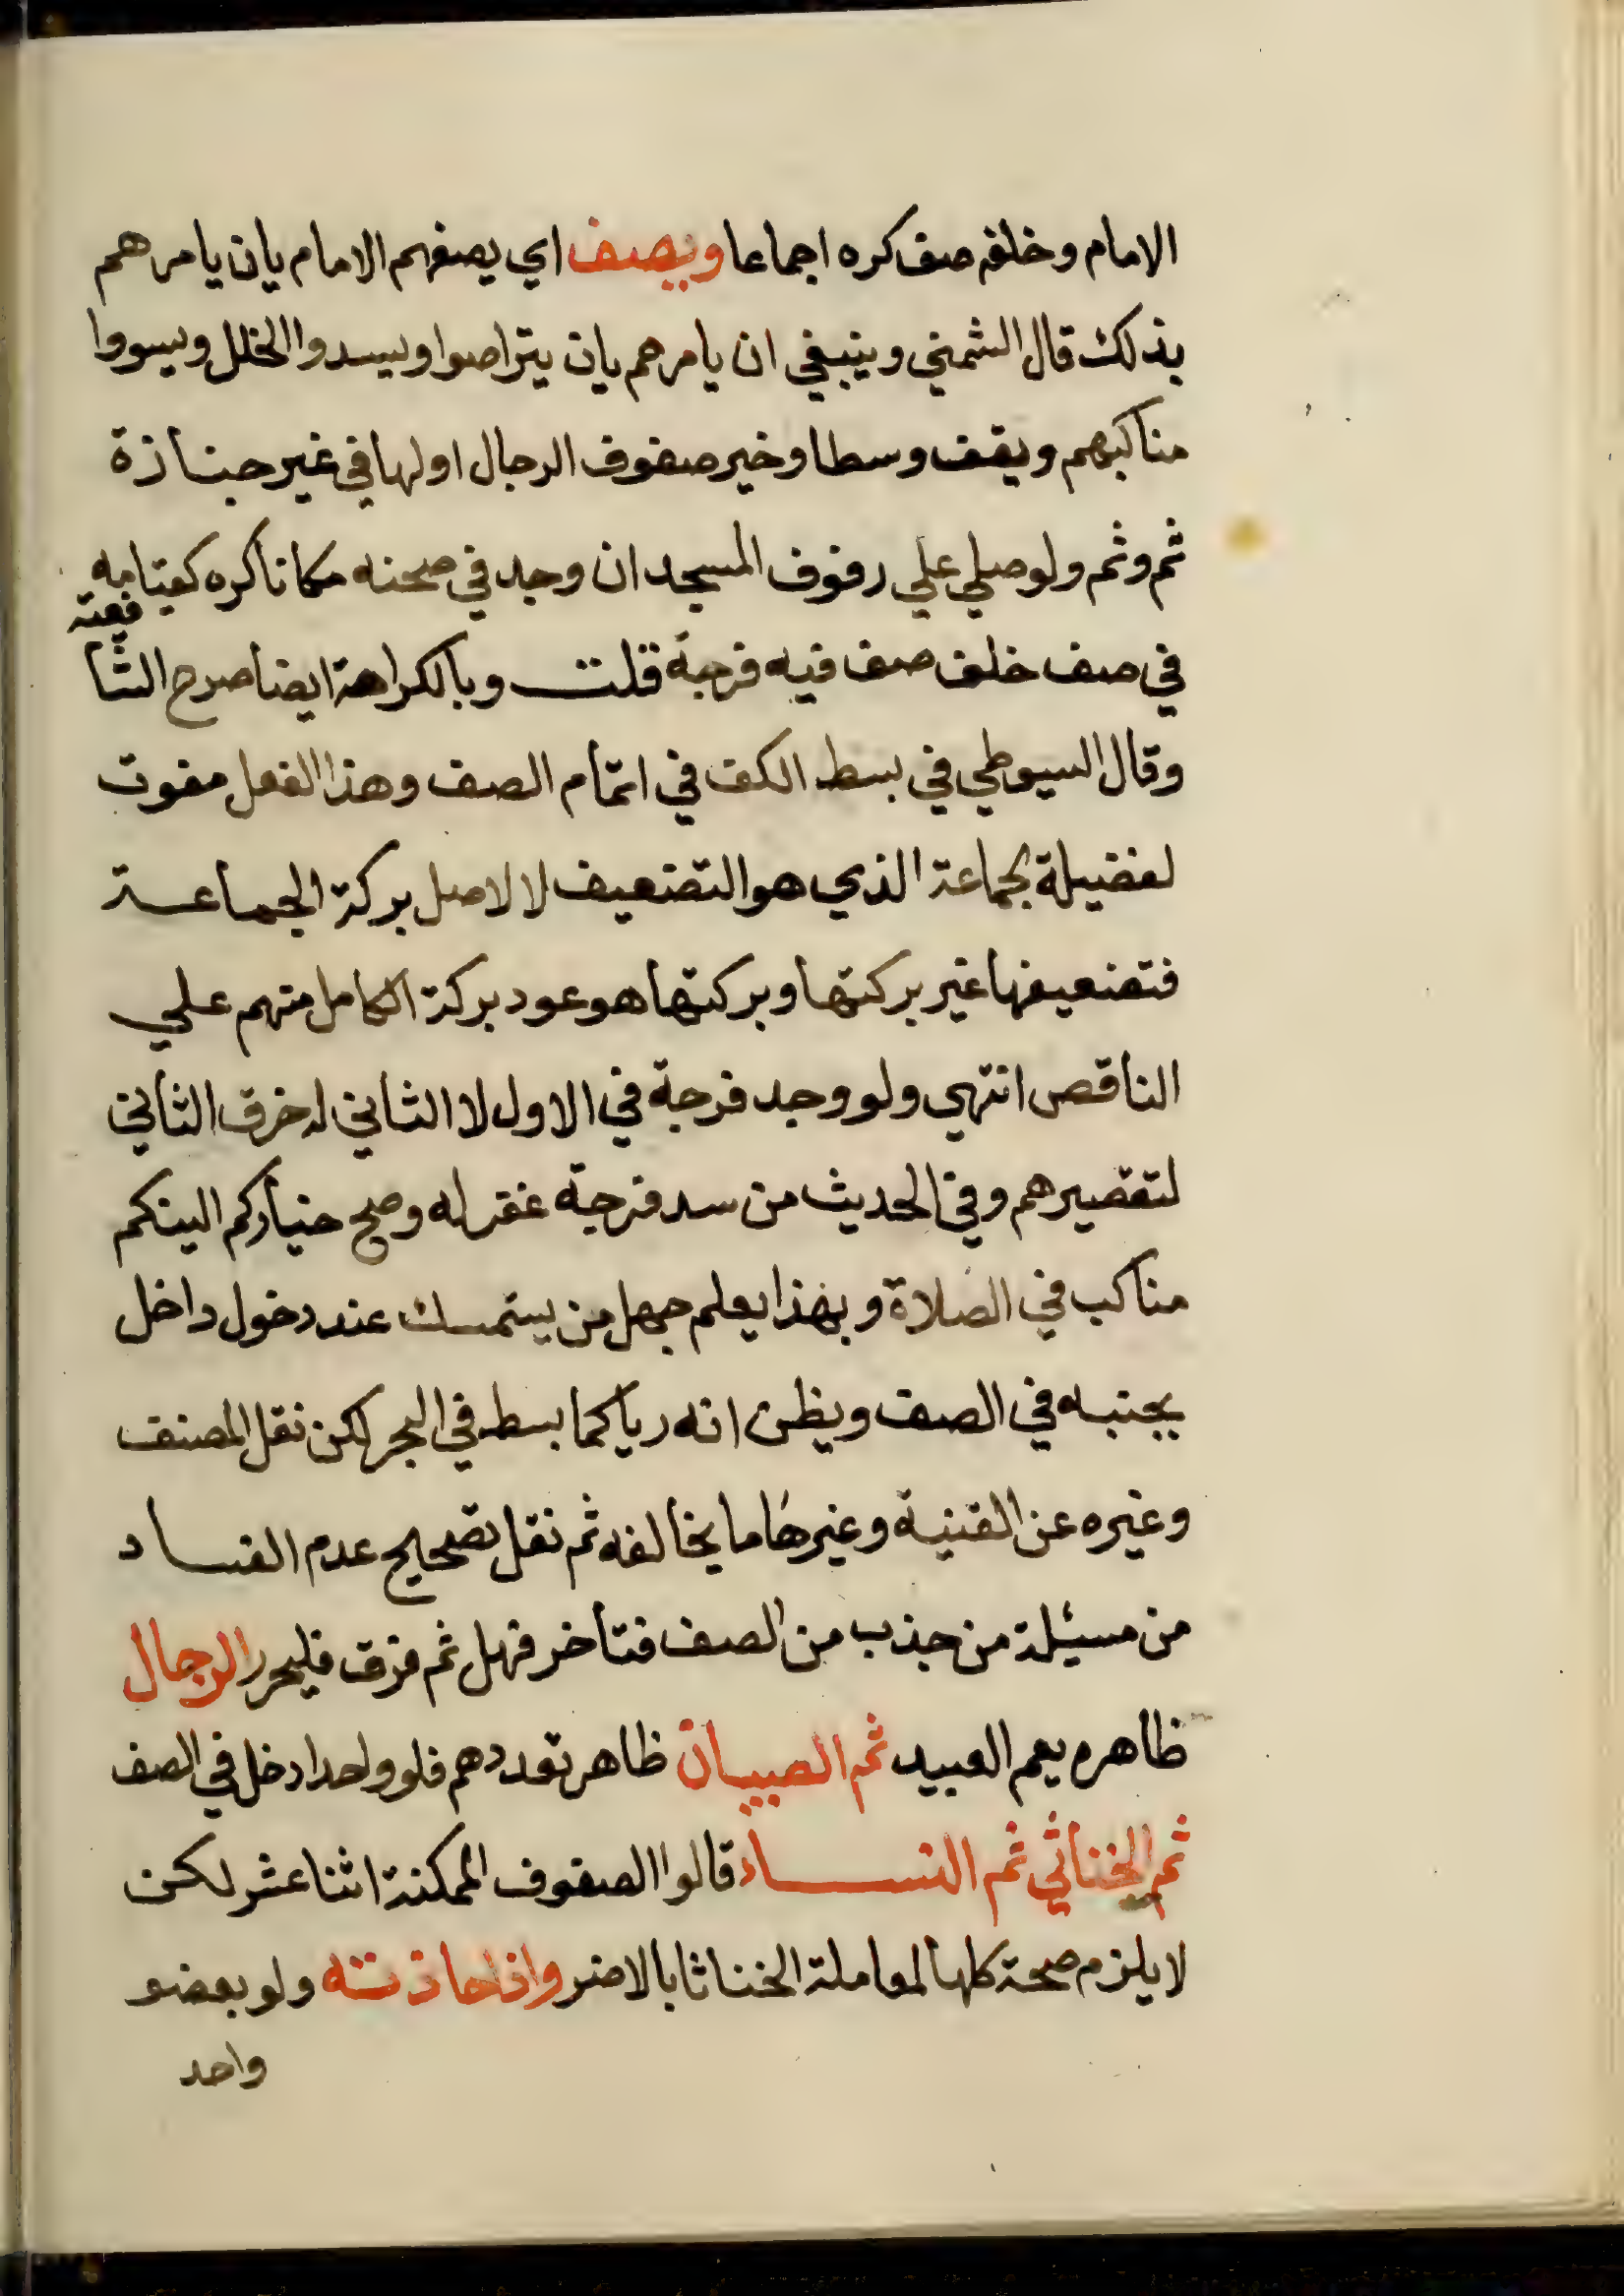 الامام وخلفه صف كره اجماعا ويصف اي يصفهم الامام بان يامرهم
بذلك قال الشمني وينبغي ان يامرهم بان يتراصوا ويسدوا الخلل ويسووا
مناكبهم ويقف وسطا وخير صفوف الرجال اولها في غير جنازة
ثم وثم ولو صلي علي رفوف المسجد ان وجد في صحنه مكانا كره كقيامه
في صف خلف صف فيه فرجة قلت وبالكراهة ايضا صرح الشا
فعية
وقال السيوطي في بسط الكف في اتمام الصف وهذا الفعل مفوت
لفضيلة الجماعة الذي هو التضعيف لا لاصل بركة الجماعة
فتضعيفها غير بركتها وبركتها هو عود بركة الكامل منهم علي
الناقص انتهي ولو وجد فرجة في الاول لا الثاني له خرق الثاني
لتقصيرهم وفي الحديث من سد فرجة غفر له وصح خياركم الينكم
مناكب في الصلاة وبهذا يعلم جهل من يستمسك عند دخول داخل
بجنبه في الصف ويظن انه ريا كما بسط في البحر لكن نقل المصنف
وغيره عن القنية وغيرها ما يخالفه ثم نقل تصحيح عدم الفساد
من مسئلة من جذب من الصف فتاخر فهل ثم فرق فليحرر الرجال
ظاهره يعم العبيد ثم الصبيان ظاهر تعددهم فلو واحدا دخل في الصف
ثم الخناثي ثم النساء قالوا الصفوف الممكنة اثنا عشر لكن
لا يلزم صحة كلها لمعاملة الخناثا بالاضر واذا حاذته ولو بعضو
واحد